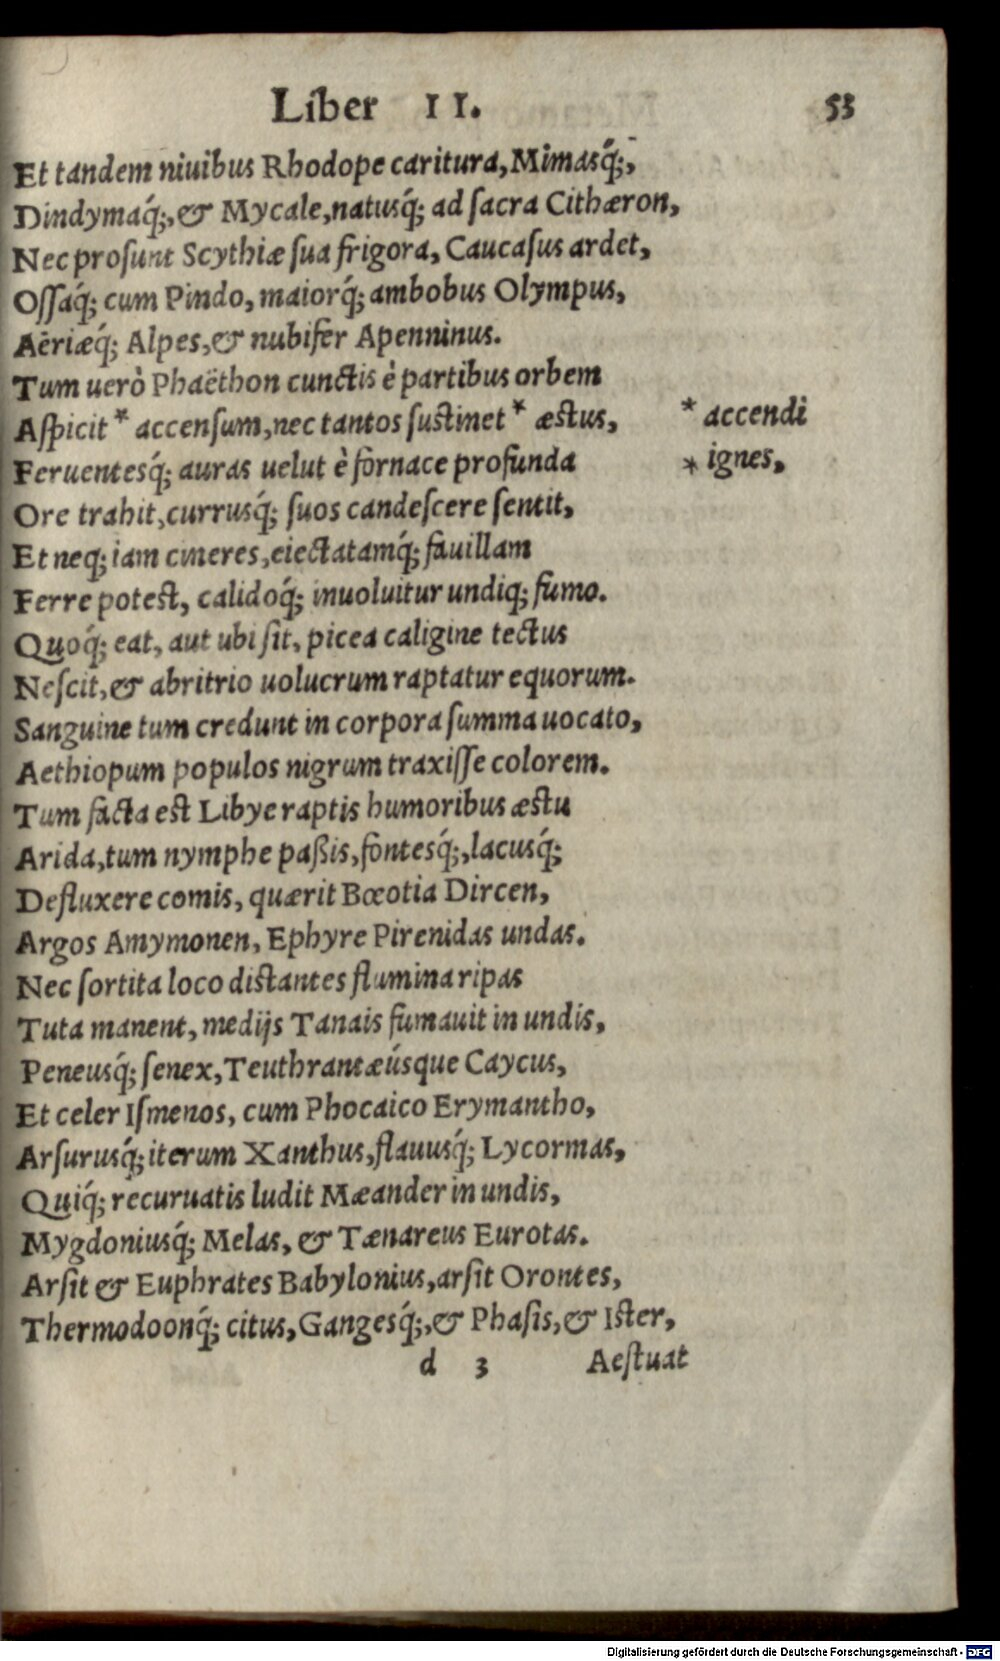 Liber II. 53
Et tandem niuibus Rhodope caritura, Mimasq́;,
Dindymaq́;, & Mycale, natusq́; ad ſacra Cithæron,
Nec proſunt Scythiæ ſua frigora, Caucaſus ardet,
Oſſaq́; cum Pindo, maiorq́; ambobus Olympus,
Aëriæq́; Alpes, & nubifer Apenninus.
Tum uerò Phaëthon cunctis è partibus orbem
Aſpicit * accenſum, nec tantos ſustinet * æstus, * accendi
Feruentesq́; auras uelut è fornace profunda * ignes,
Ore trahit, currusq́; ſuos candeſcere ſentit,
Et neq; iam cineres, eiectatamq́; fauillam
Ferre potest, calidoq́; inuoluitur undiq; fumo.
Quoq́; eat, aut ubi ſit, picea caligine tectus
Neſcit, & abritrio uolucrum raptatur equorum.
Sanguine tum credunt in corpora ſumma uocato,
Aethiopum populos nigrum traxiſſe colorem.
Tum facta est Libye raptis humoribus æstu
Arida, tum nymphe paßis, fontesq́;, lacusq́;
Defluxere comis, quærit Bœotia Dircen,
Argos Amymonen, Ephyre Pirenidas undas.
Nec ſortita loco distantes flumina ripas
Tuta manent, medijs Tanais fumauit in undis,
Peneusq́; ſenex, Teuthrantæúsque Caycus,
Et celer Iſmenos, cum Phocaico Erymantho,
Arſurusq́; iterum Xanthus, flauusq́; Lycormas,
Quiq́; recuruatis ludit Mæander in undis,
Mygdoniusq́; Melas, & Tænareus Eurotas.
Arſit & Euphrates Babylonius, arſit Orontes,
Thermodoonq́; citus, Gangesq́;, & Phaſis, & Iſter,
d 3 Aeſtuat
Digitalisierung gefördert durch die Deutsche Forschungsgemeinschaft - DFG